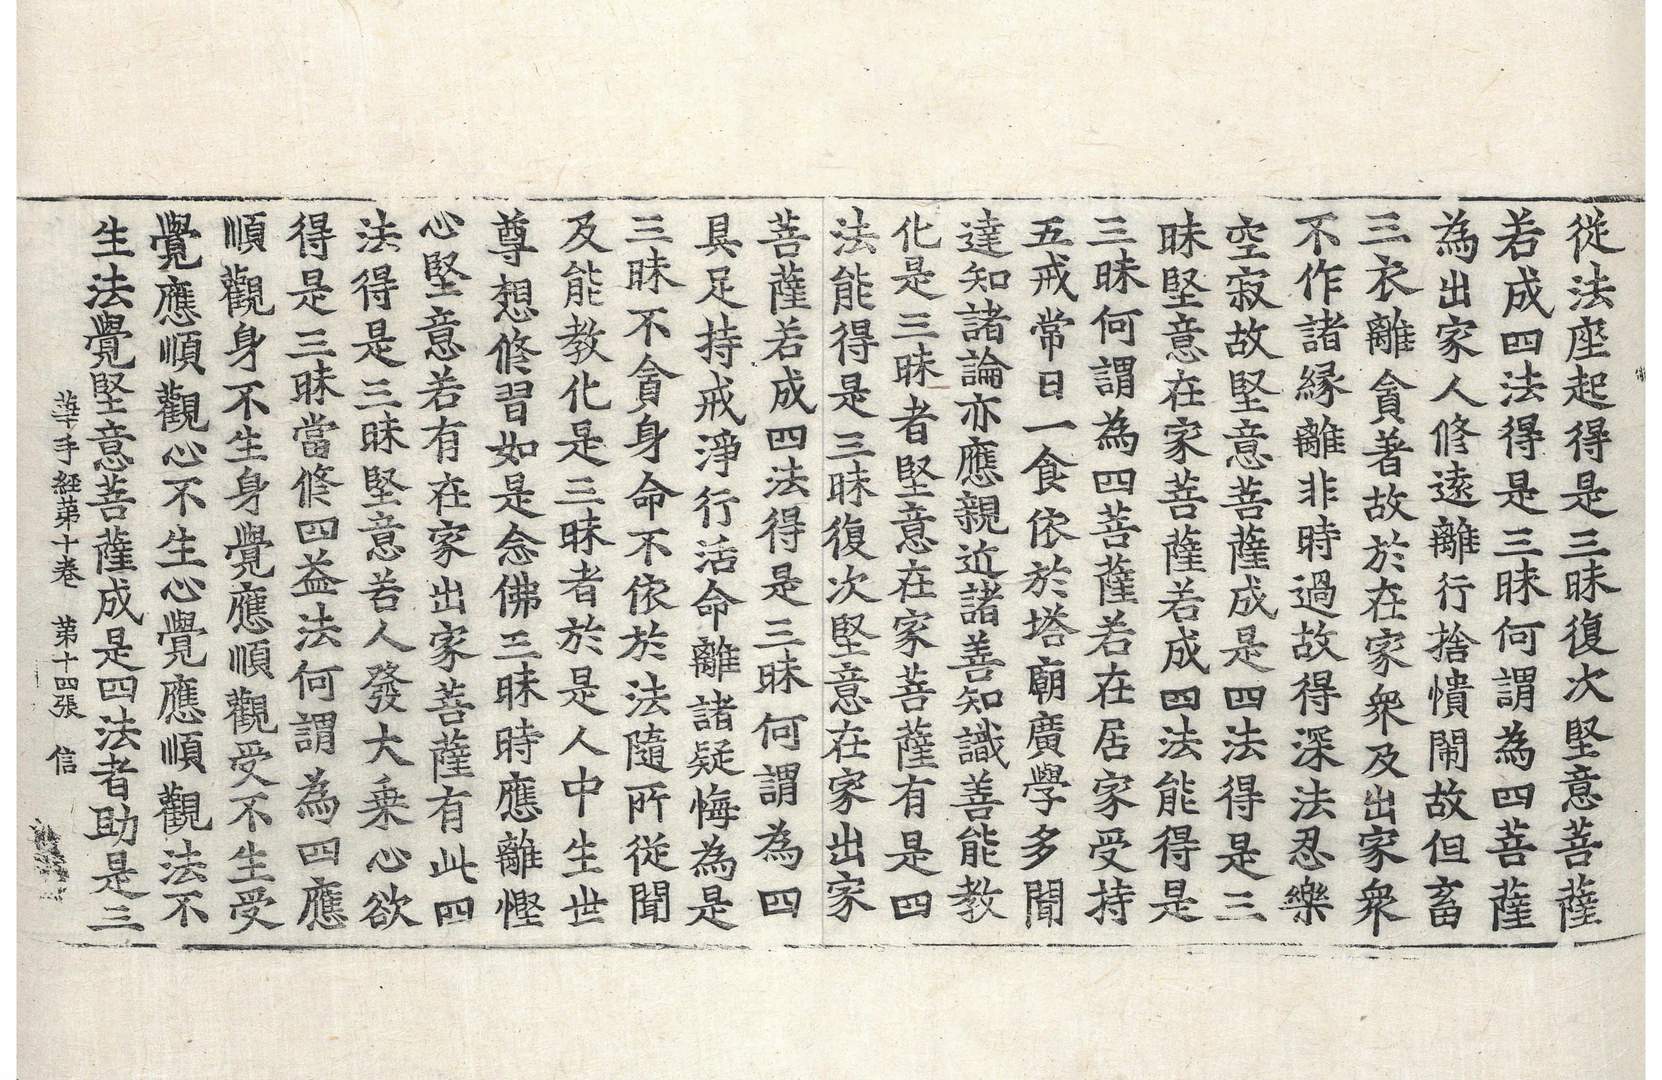 從法座起得是三昧復次堅意菩薩
若成四法得是三昧何謂為四菩薩
為出家人修遠離行捨憒閙故但畜
三衣離貪著故於在家衆及出家衆
不作諸緣離非時過故得深法忍樂
空寂故堅意菩薩成是四法得是三
昧堅意在家菩薩若成四法能得是
三昧何謂為四菩薩若在居家受持
五戒常日一食依於塔廟廣學多聞
達知諸論亦應親近諸善知識善能教
化是三昧者堅意在家菩薩有是四
法能得是三昧復次堅意在家出家
菩薩若成四法得是三昧何謂為四
具足持戒淨行活命離諸疑悔為是
三昧不貪身命不依於法隨所從聞
及能教化是三昧者於是人中生世
尊想修習如是念佛三昧時應離慳
心堅意若有在家出家菩薩有此四
法得是三昧堅意若人發大乗心欲
得是三昧當修四益法何謂為四應
順觀身不生身覺應順觀受不生受
覺應順觀心不生心覺應順觀法不
生法覺堅意菩薩成是四法者助是三
華手経第十卷　第十四張　信